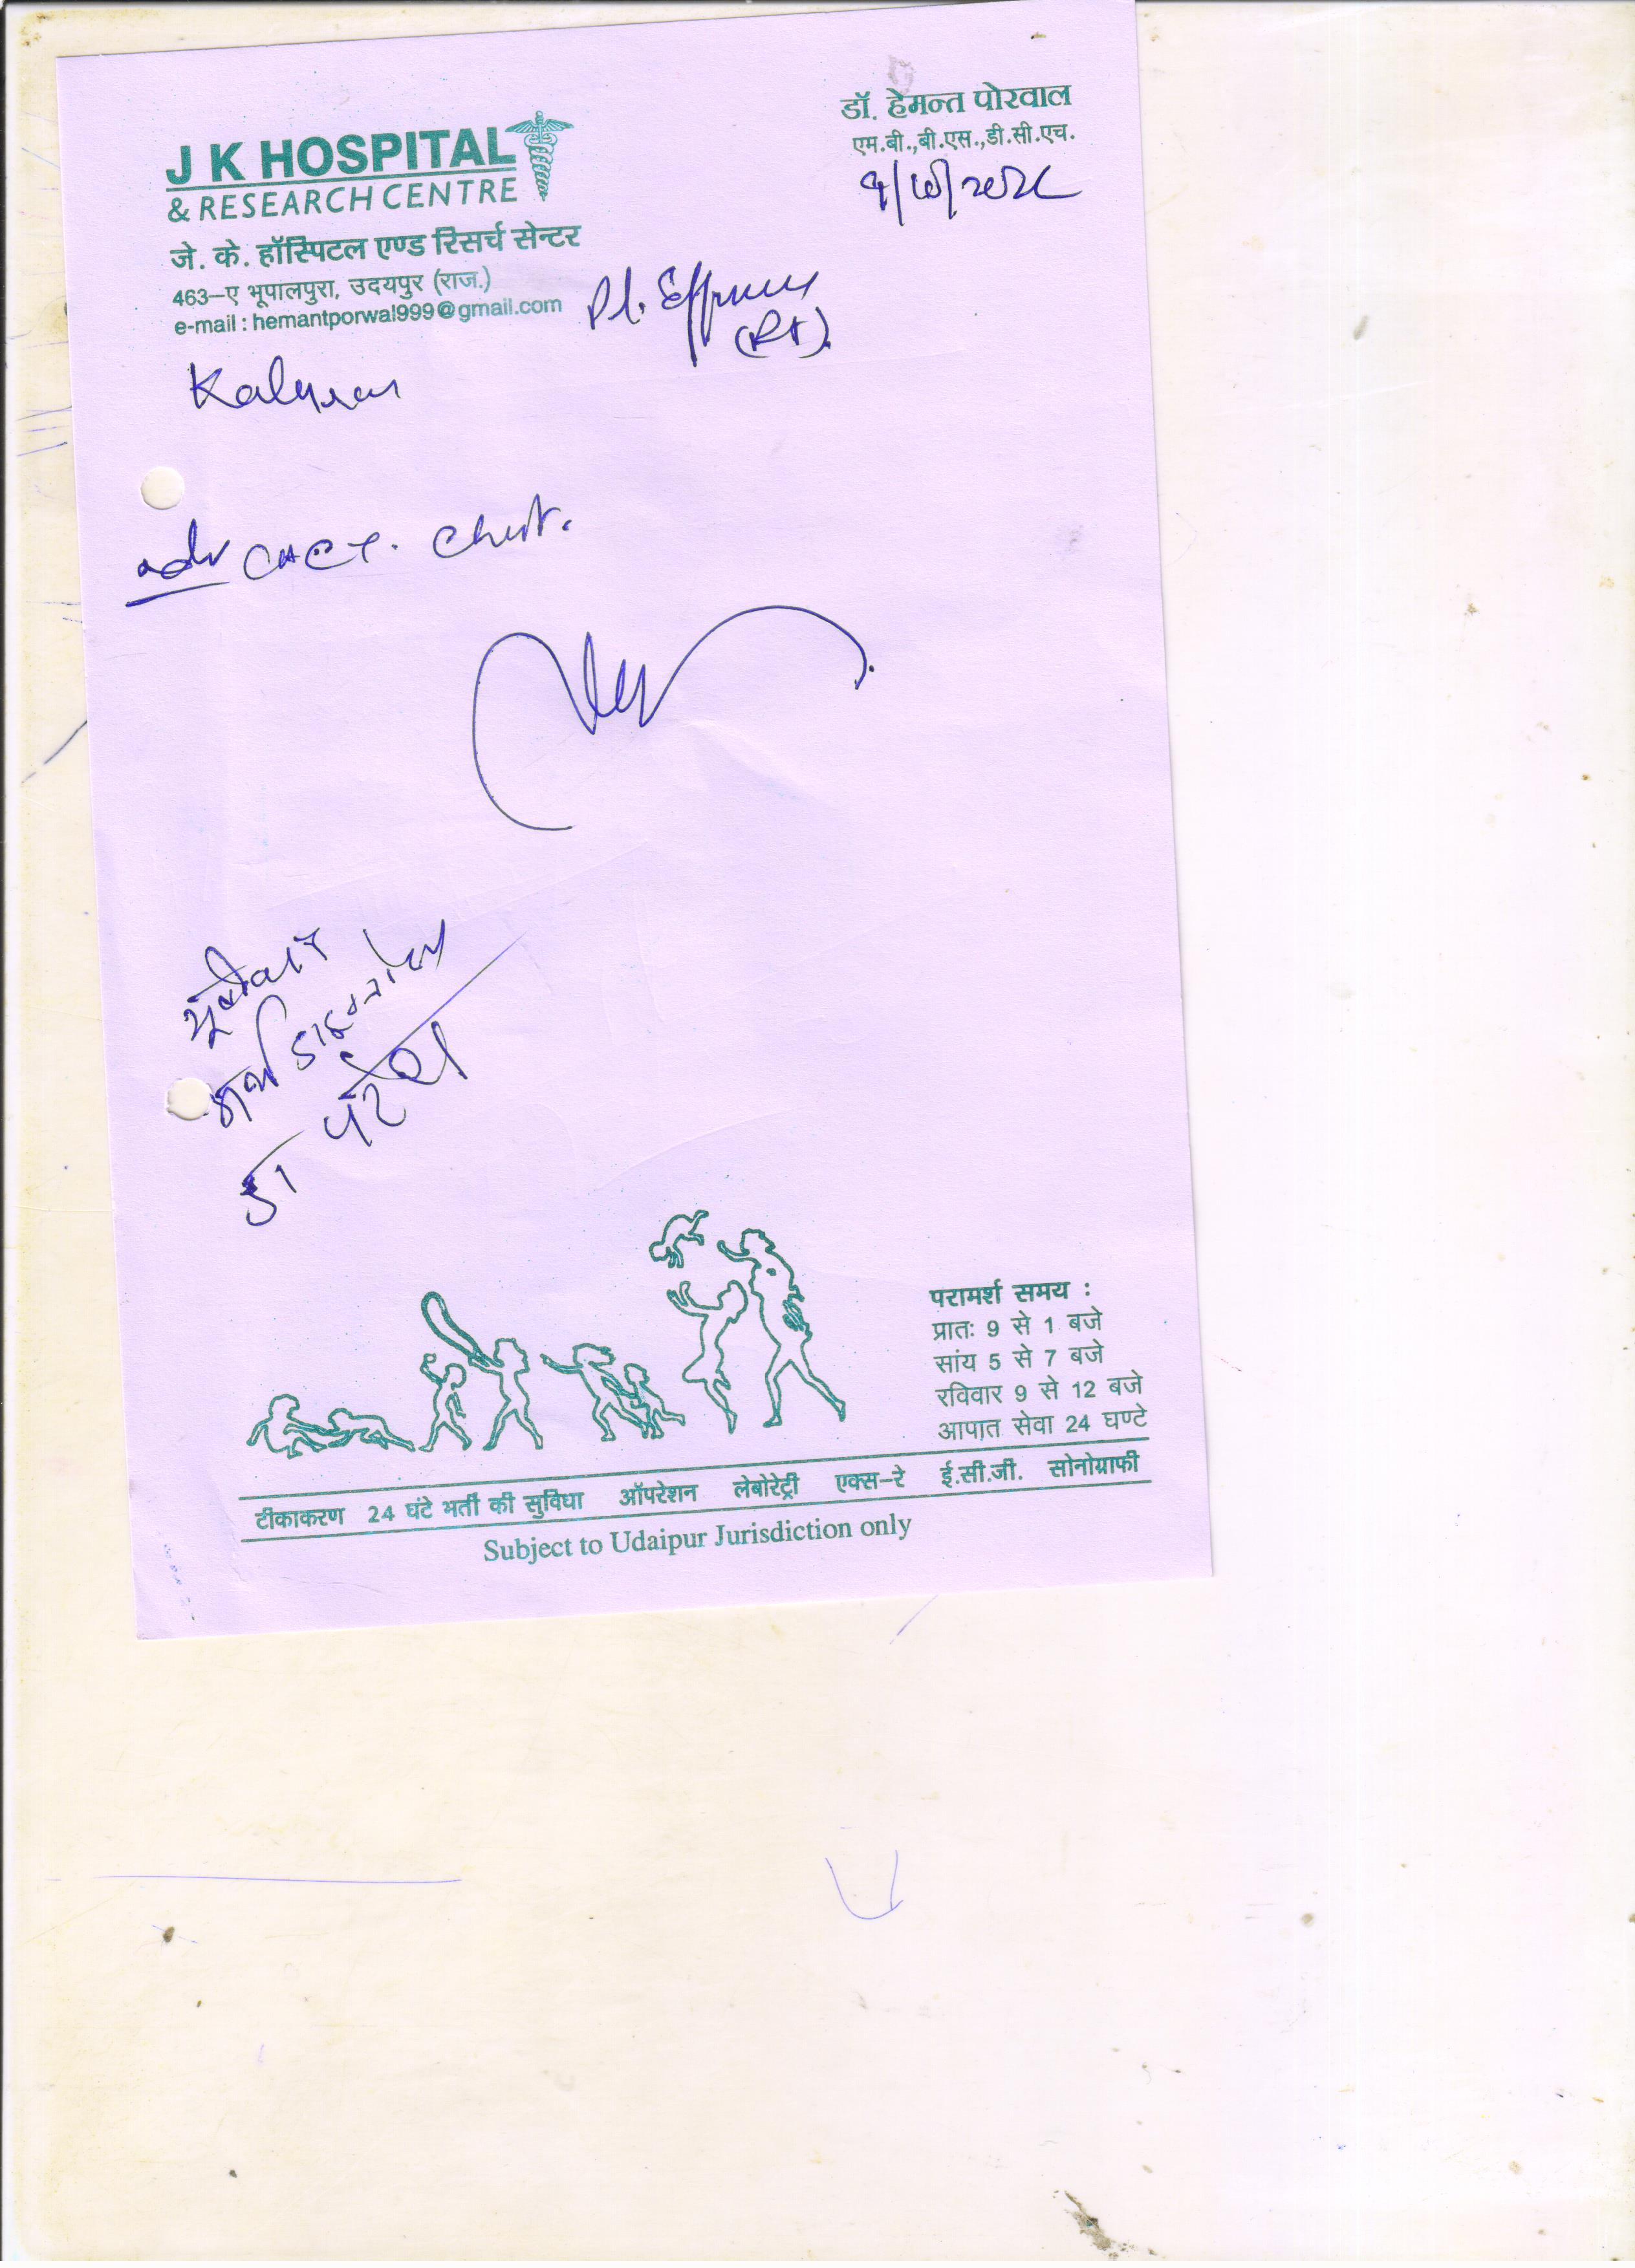 J K HOSPITAL
& RESEARCH CENTRE
जे. के. हॉस्पिटल एण्ड रिसर्च सेन्टर
463–ए भूपालपुरा, उदयपुर (राज.)
e-mail : hemantporwal999@gmail.com
डॉ. हेमन्त पोरवाल
एम.बी.,बी.एस.,डी.सी.एच.
Pl. Effusion
(Rt).
Kalyan
adv CECT. Chest.
डा
परामर्श समय :
प्रातः 9 से 1 बजे
सांय 5 से 7 बजे
रविवार 9 से 12 बजे
आपात सेवा 24 घण्टे
टीकाकरण 24 घंटे भर्ती की सुविधा ऑपरेशन लेबोरेट्री एक्स–रे ई.सी.जी. सोनोग्राफी
Subject to Udaipur Jurisdiction only